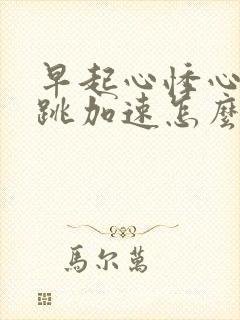 早起心悸心
跳加速怎麼
馬尔萬